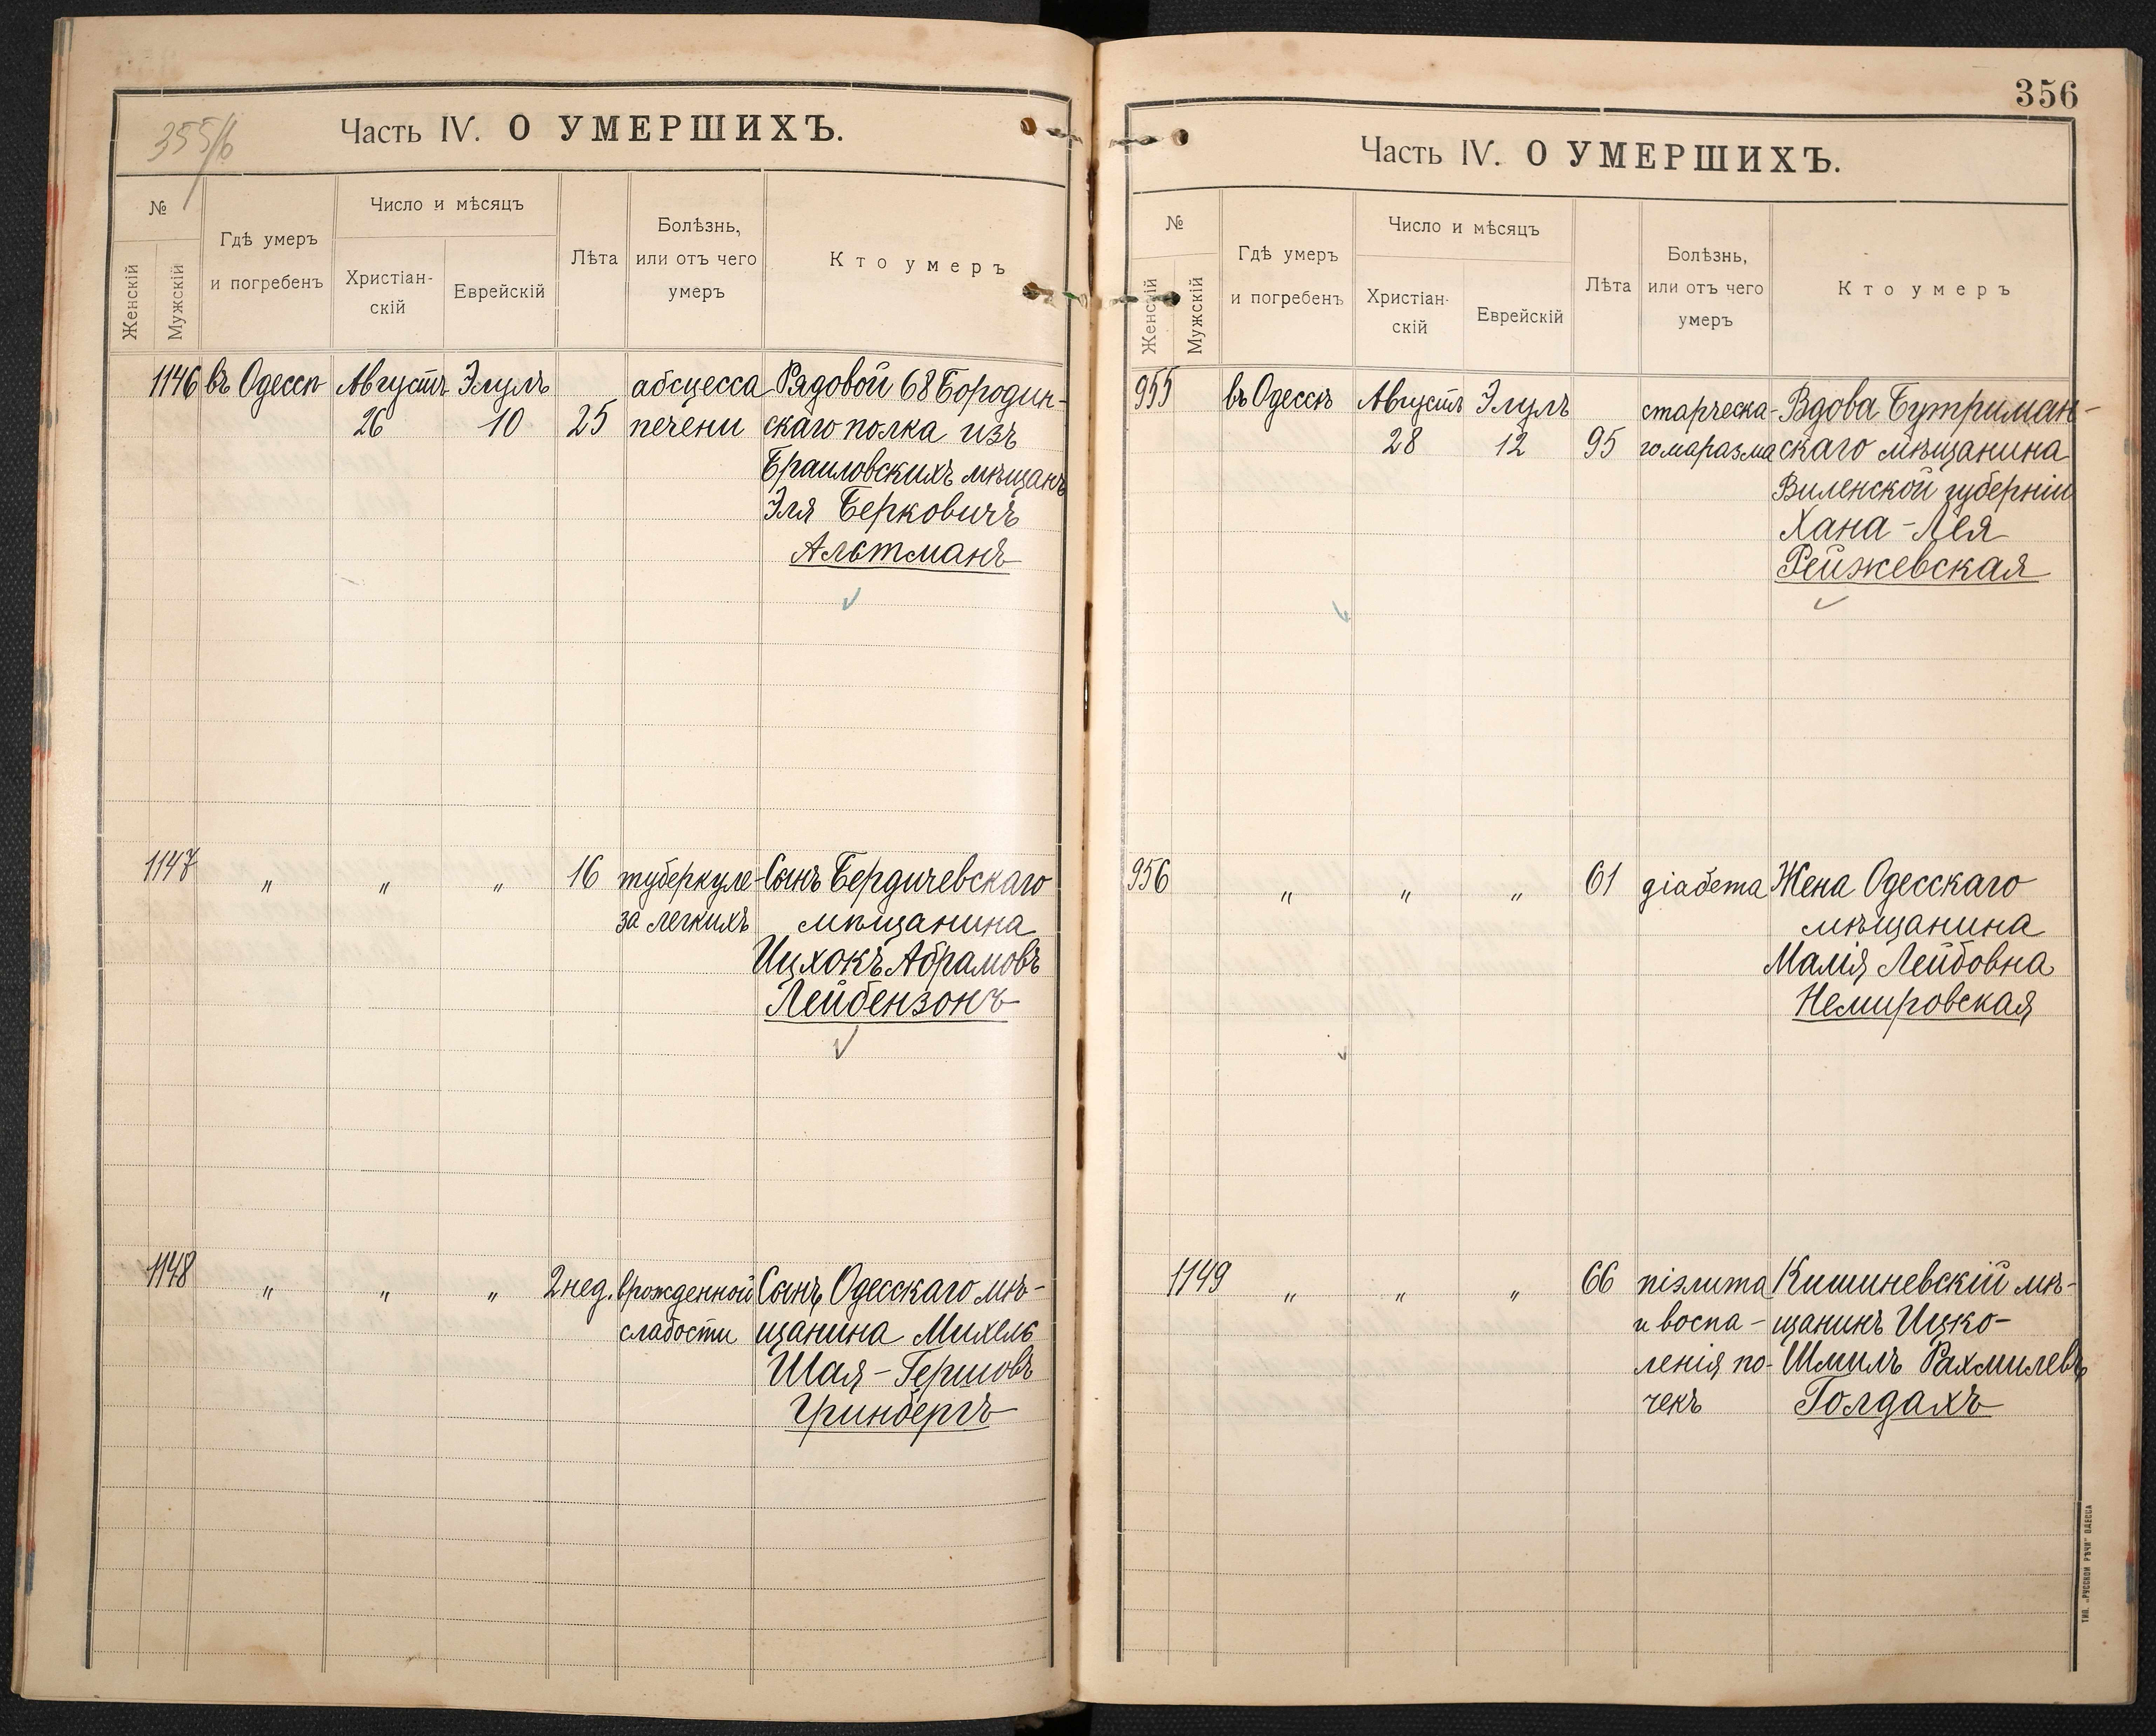 355/b
Часть IV. О УМЕРШИХЪ.
№
Женскій
Мужскій
Гдѣ умеръ
и погребенъ
Число и мѣсяцъ
Христіан-
скій
Еврейскій
Лѣта
Болѣзнь,
или отъ чего
умеръ
Кто умеръ
1146 въ Одессѣ Августъ Элулъ абсцесса Рядовой 68 Бородин-
26 10 25 печени скаго полка изъ
Браиловскихъ мѣщанъ
Эля Берковичъ
Альтманъ
1147 " " " 16 туберкуле- Сынъ Бердичевскаго
за легкихъ мѣщанина
Ицхокъ Абрамовъ
Лейбензонъ
1148 " " " 2 нед. врожденной Сынъ Одесскаго мѣ-
слабости щанина Михель
Шая-Гершовъ
Гринбергъ
356
Часть IV. О УМЕРШИХЪ.
№
Женскій
Мужскій
Гдѣ умеръ
и погребенъ
Число и мѣсяцъ
Христіан-
скій
Еврейскій
Лѣта
Болѣзнь,
или отъ чего
умеръ
Кто умеръ
955 въ Одессѣ Августъ Элулъ старческа- Вдова Бутриман-
28 12 95 го маразма скаго мѣщанина
Виленской губерніи
Хана-Лея
Рейжевская
956 " " " 61 діабета Жена Одесскаго
мѣщанина
Малія Лейбовна
Немировская
1149 " " " 66 піэлита Кишиневскій мѣ-
и воспа- щанинъ Ицко-
ленія по- Шмилъ Рахмилевъ
чекъ Голдахъ
ТИП. „РУССКОЙ РѢЧИ" ОДЕССА